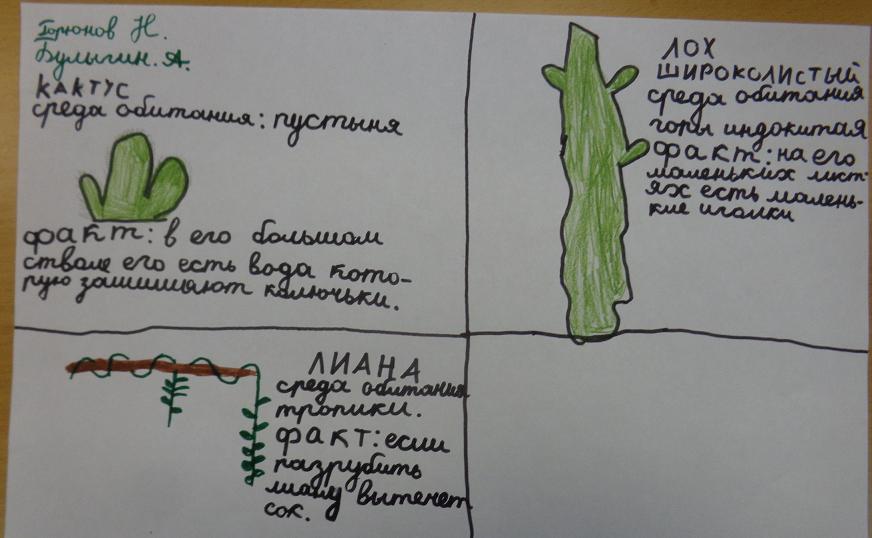 Горюнов Н.
Булыгин. А.
КАКТУС
среда обитания: пустыня
факт: в его большом
стволе его есть вода кото-
рую защищают колючьки.
ЛОХ
ШИРОКОЛИСТЫЙ
среда обитания
горы индокитая
факт: на его
маленьких лист-
ях есть малень-
кие иголки
ЛИАНА
среда обитания
тропики.
ФАКТ: если
разрубить
лиану вытечет
сок.